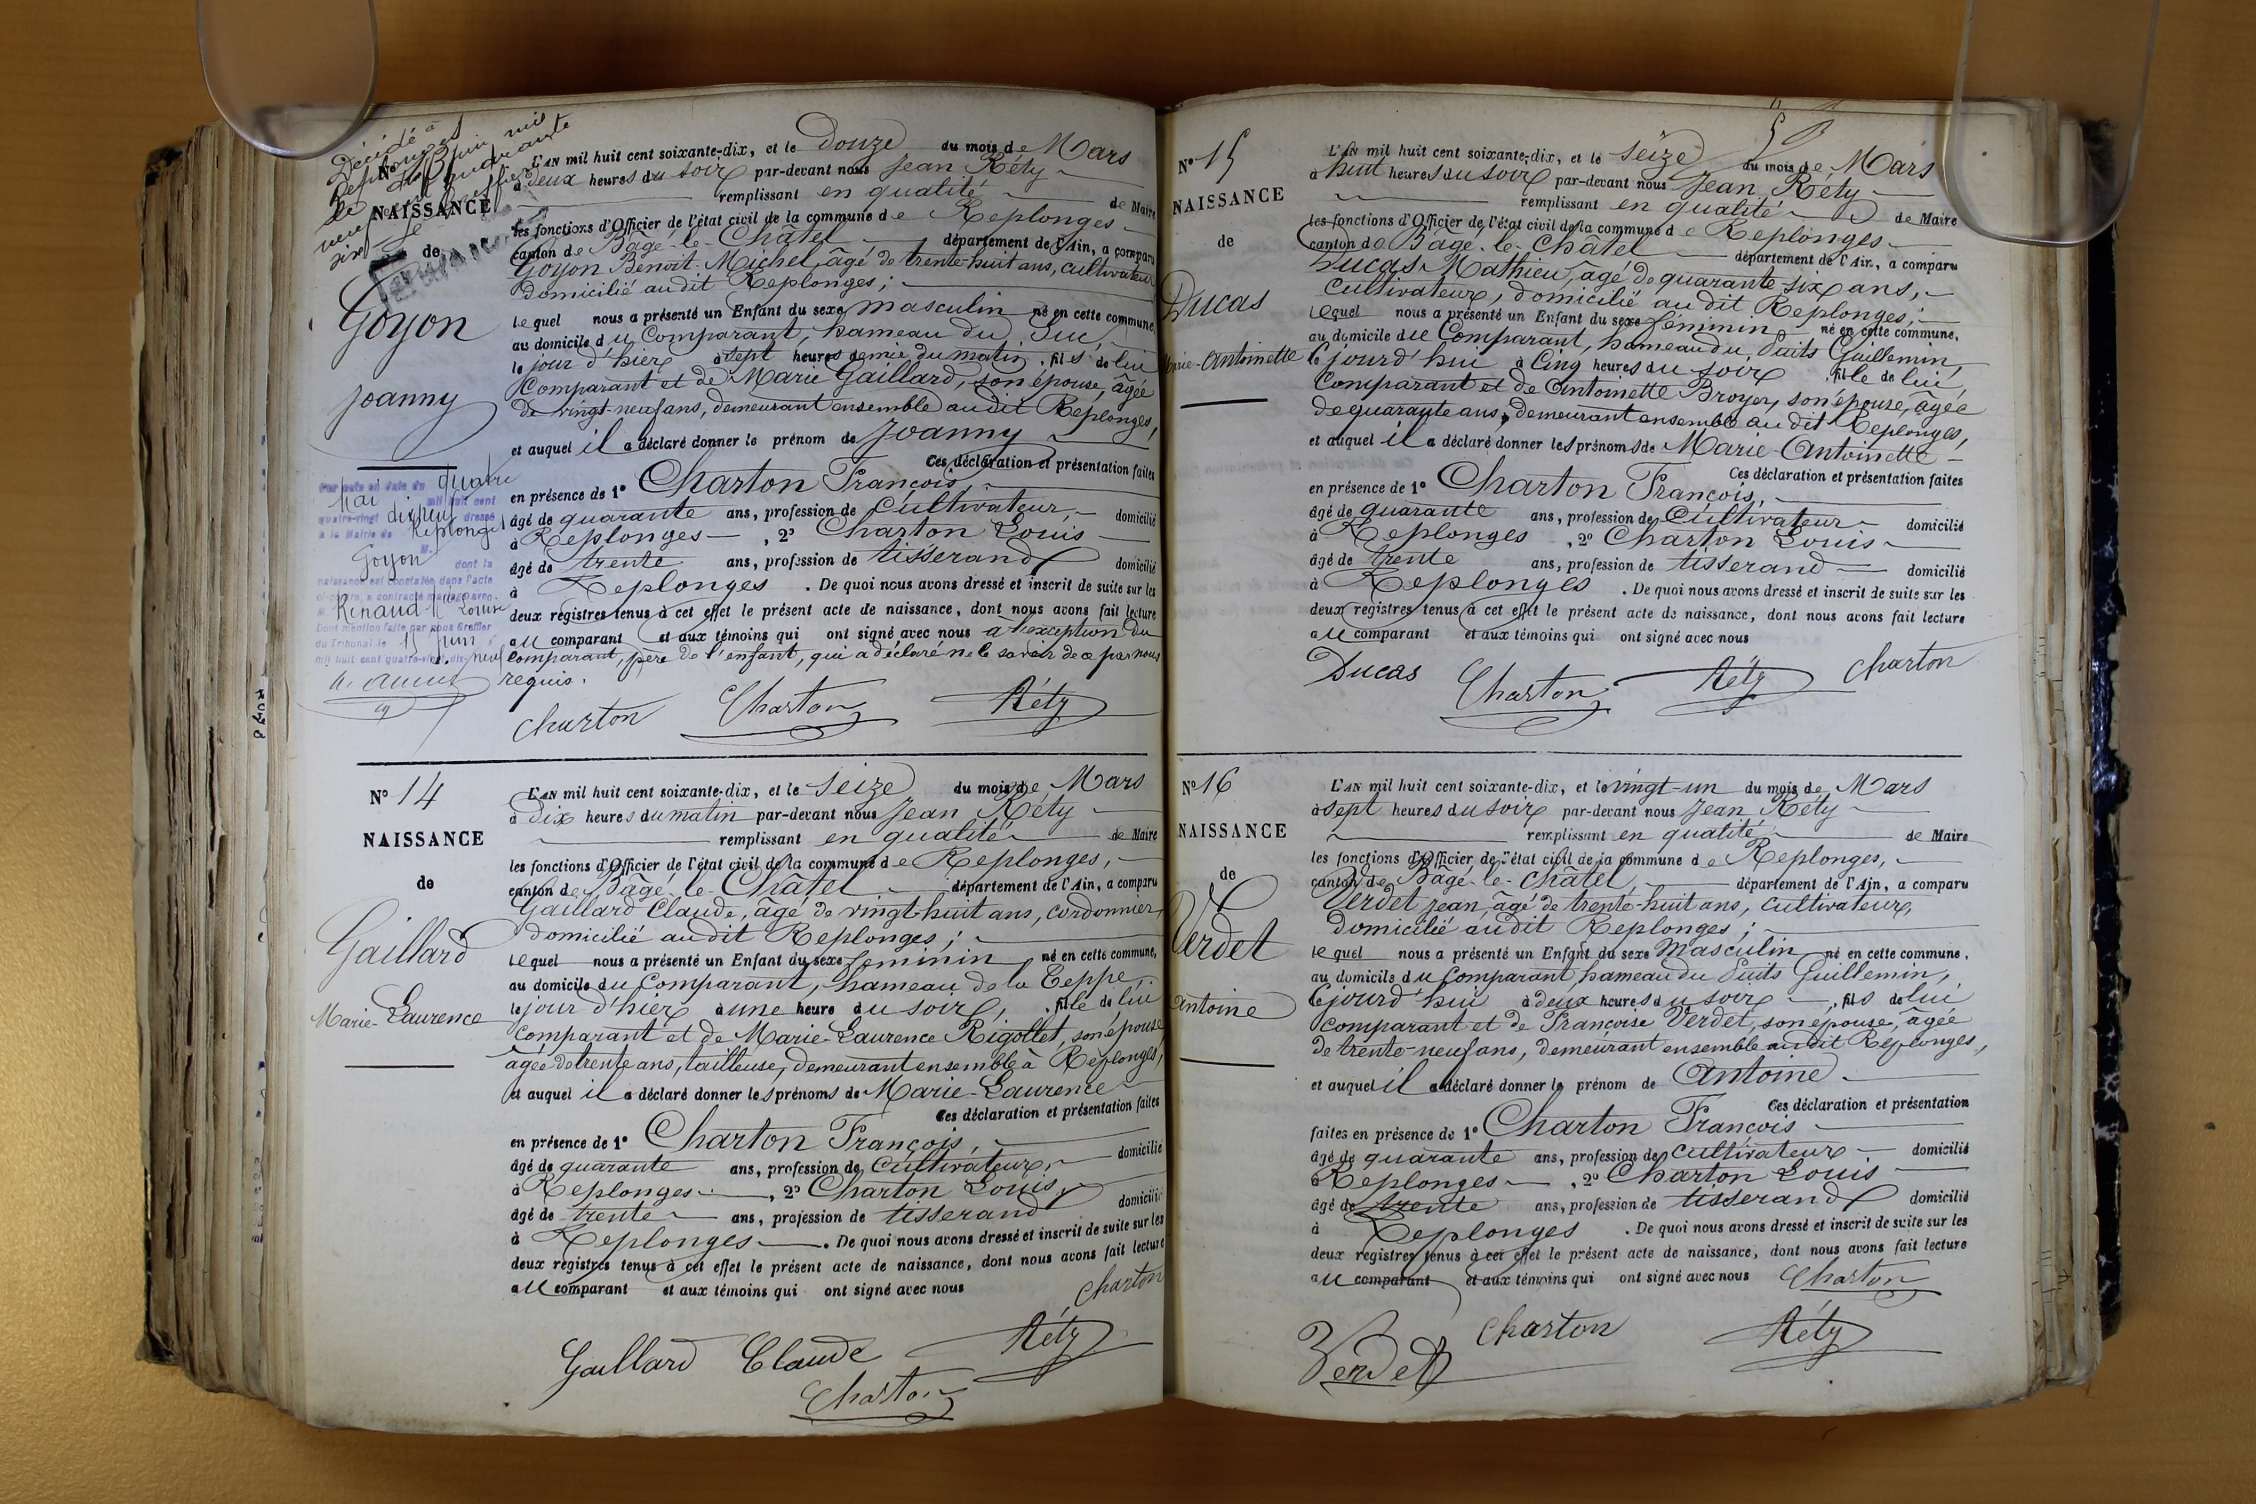 Décédé à
Replonges
le 13 juin mil
neuf cent quarante
six
Le Greffier
NAISSANCE
de
Goyon
Joanny
L'AN mil huit cent soixante-dix, et le Douze du mois de Mars
à deux heures du soir par-devant nous Jean Réty
remplissant en qualité de Maire
les fonctions d'Officier de l'état civil de la commune de Replonges
canton de Bâgé-le-Châtel département de l'Ain, a comparu
Goyon Benoit-Michel, âgé de trente-huit ans, cultivateur
domicilié audit Replonges;
lequel nous a présenté un Enfant du sexe masculin né en cette commune,
au domicile du Comparant, hameau du Suc,
le jour d'hier à sept heures demie du matin, fils de lui
Comparant et de Marie Gaillard, son épouse, âgée
de vingt-neuf ans, demeurant ensemble audit Replonges,
et auquel il a déclaré donner le prénom de Joanny
Ces déclaration et présentation faites
en présence de 1º Charton François,
âgé de quarante ans, profession de Cultivateur, domicilié
à Replonges, 2º Charton Louis
âgé de trente ans, profession de tisserand domicilié
à Replonges. De quoi nous avons dressé et inscrit de suite sur les
deux registres tenus à cet effet le présent acte de naissance, dont nous avons fait lecture
au comparant et aux témoins qui ont signé avec nous à l'exception du
comparant, père de l'enfant, qui a déclaré ne le savoir de ce par nous
requis.
Charton Charton Réty
Par acte en date du quatre
Mai mil huit cent
quatre-vingt dix neuf dressé
à la Mairie de Replonges
M.
Goyon dont la
naissance est constatée dans l'acte
ci-contre, a contracté mariage avec
Renaud Mie Louise
Dont mention faite par nous Greffier
du Tribunal le 15 Juin
mil huit cent quatre-vingt-dix-neuf
Nº 14
NAISSANCE
de
Gaillard
Marie-Laurence
L'AN mil huit cent soixante-dix, et le Seize du mois de Mars
à Dix heures du matin par-devant nous Jean Réty
remplissant en qualité de Maire
les fonctions d'Officier de l'état civil de la commune de Replonges,
canton de Bâgé-le-Châtel département de l'Ain, a comparu
Gaillard Claude, âgé de vingt-huit ans, cordonnier,
domicilié audit Replonges;
lequel nous a présenté un Enfant du sexe féminin né en cette commune,
au domicile du Comparant, hameau de la Teppe,
le jour d'hier à une heure du soir, fille de lui
comparant et de Marie-Laurence Rigollet, son épouse,
âgée de trente ans, tailleuse, demeurant ensemble à Replonges,
et auquel il a déclaré donner les prénoms de Marie-Laurence
Ces déclaration et présentation faites
en présence de 1º Charton François,
âgé de quarante ans, profession de Cultivateur, domicilié
à Replonges, 2º Charton Louis,
âgé de trente ans, profession de tisserand domicilié
à Replonges. De quoi nous avons dressé et inscrit de suite sur les
deux registres tenus à cet effet le présent acte de naissance, dont nous avons fait lecture
au comparant et aux témoins qui ont signé avec nous
Charton
Gaillard Claude Réty
Charton
Nº 15
NAISSANCE
de
Ducas
Marie-Antoinette
L'AN mil huit cent soixante-dix, et le Seize du mois de Mars
à huit heures du soir par-devant nous Jean Réty
remplissant en qualité de Maire
les fonctions d'Officier de l'état civil de la commune de Replonges
canton de Bâgé-le-Châtel département de l'Ain, a comparu
Ducas Mathieu, âgé de quarante-six ans,
Cultivateur, domicilié audit Replonges;
lequel nous a présenté un Enfant du sexe féminin né en cette commune,
au domicile du Comparant, hameau du Puits Guillemin,
le jourd'hui à Cinq heures du soir, fille de lui,
Comparant et de Antoinette Broyer, son épouse, âgée
de quarante ans, demeurant ensemble audit Replonges,
et auquel il a déclaré donner les prénoms de Marie-Antoinette
Ces déclaration et présentation faites
en présence de 1º Charton François,
âgé de quarante ans, profession de Cultivateur domicilié
à Replonges, 2º Charton Louis
âgé de trente ans, profession de tisserand domicilié
à Replonges. De quoi nous avons dressé et inscrit de suite sur les
deux registres tenus à cet effet le présent acte de naissance, dont nous avons fait lecture
au comparant et aux témoins qui ont signé avec nous
Ducas Charton Réty Charton
Nº 16
NAISSANCE
de
Verdet
Antoine
L'AN mil huit cent soixante-dix, et le vingt-un du mois de Mars
à sept heures du soir par-devant nous Jean Réty
remplissant en qualité de Maire
les fonctions d'Officier de l'état civil de la commune de Replonges,
canton de Bâgé-le-Châtel, département de l'Ain, a comparu
Verdet Jean, âgé de trente-huit ans, cultivateur,
domicilié audit Replonges;
lequel nous a présenté un Enfant du sexe Masculin né en cette commune,
au domicile du Comparant, hameau du Puits Guillemin,
le jourd'hui à deux heures du soir, fils de lui
comparant et de Françoise Verdet, son épouse, âgée
de trente-neuf ans, demeurant ensemble audit Replonges,
et auquel il a déclaré donner le prénom de Antoine
Ces déclaration et présentation
faites en présence de 1º Charton François
âgé de quarante ans, profession de cultivateur domicilié
à Replonges, 2º Charton Louis
âgé de trente ans, profession de tisserand domicilié
à Replonges. De quoi nous avons dressé et inscrit de suite sur les
deux registres tenus à cet effet le présent acte de naissance, dont nous avons fait lecture
au comparant et aux témoins qui ont signé avec nous Charton
Verdet Charton Réty